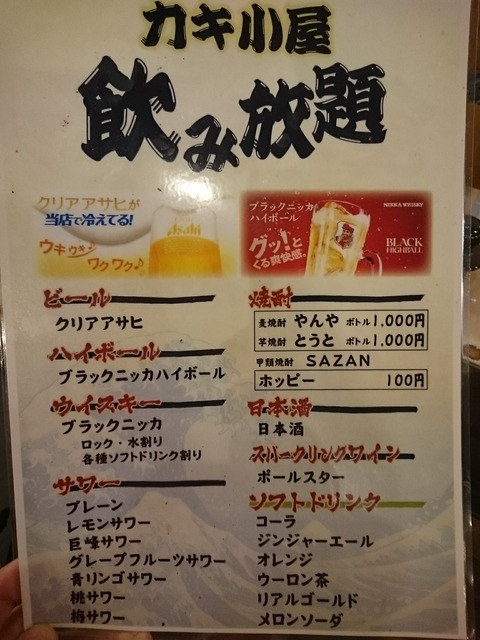 カキ小屋
飲み放題
クリアアサヒが
当店で冷えてる!
ウキウキ♪
ワクワク♪
Asahi
ブラックニッカ
ハイボール
NIKKA WHISKY
グッ!と
くる爽快感。
BLACK
HIGHBALL
ビール
クリアアサヒ
ハイボール
ブラックニッカハイボール
ウイスキー
ブラックニッカ
ロック・水割り
各種ソフトドリンク割り
サワー
プレーン
レモンサワー
巨峰サワー
グレープフルーツサワー
青リンゴサワー
桃サワー
梅サワー
焼酎
麦焼酎 やんや ボトル1,000円
芋焼酎 とうと ボトル1,000円
甲類焼酎 SAZAN
ホッピー 100円
日本酒
日本酒
スパークリングワイン
ポールスター
ソフトドリンク
コーラ
ジンジャーエール
オレンジ
ウーロン茶
リアルゴールド
メロンソーダ